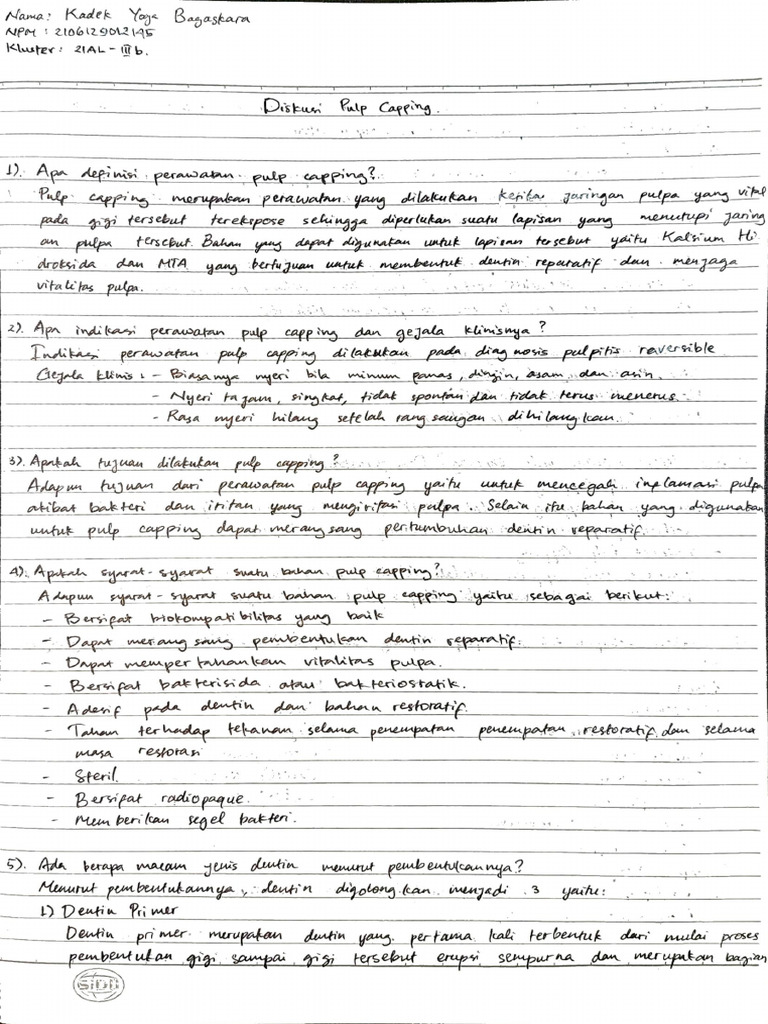 Nama: Kadek Yoga Bagaskara
NPM : 2106129012145
Kluster: 21AL - III b.
Diskusi Pulp Capping.
1). Apa definisi perawatan pulp capping?
Pulp capping merupakan perawatan yang dilakukan ketika jaringan pulpa yang vital
pada gigi tersebut terekspose sehingga diperlukan suatu lapisan yang menutupi jaring
an pulpa tersebut. Bahan yang dapat digunakan untuk lapisan tersebut yaitu Kalsium Hi
droksida dan MTA yang bertujuan untuk membentuk dentin reparatif dan menjaga
vitalitas pulpa.
2). Apa indikasi perawatan pulp capping dan gejala klinisnya?
Indikasi perawatan pulp capping dilakukan pada diagnosis pulpitis reversible
Gejala klinis : - Biasanya nyeri bila minum panas, dingin, asam, dan asin.
- Nyeri tajam, singkat, tidak spontan dan tidak terus menerus.
- Rasa nyeri hilang setelah rangsangan dihilangkan.
3). Apakah tujuan dilakukan pulp capping?
Adapun tujuan dari perawatan pulp capping yaitu untuk mencegah inflamasi pulpa
akibat bakteri dan iritan yang mengiritasi pulpa. Selain itu bahan yang digunakan
untuk pulp capping dapat merangsang pertumbuhan dentin reparatif.
4). Apakah syarat-syarat suatu bahan pulp capping?
Adapun syarat-syarat suatu bahan pulp capping yaitu sebagai berikut:
- Bersifat biokompatibilitas yang baik
- Dapat merangsang pembentukan dentin reparatif.
- Dapat mempertahankan vitalitas pulpa.
- Bersifat bakterisida atau bakteriostatik.
- Adesif pada dentin dan bahan restoratif.
- Tahan terhadap tekanan selama penempatan penempatan restoratif dan selama
masa restorasi
- Steril.
- Bersifat radiopaque.
- Memberikan segel bakteri.
5). Ada berapa macam jenis dentin menurut pembentukannya?
Menurut pembentukannya, dentin digolongkan menjadi 3 yaitu:
1) Dentin Primer
Dentin primer merupakan dentin yang pertama kali terbentuk dari mulai proses
pembentukan gigi sampai gigi tersebut erupsi sempurna dan merupakan bagian
SIDU